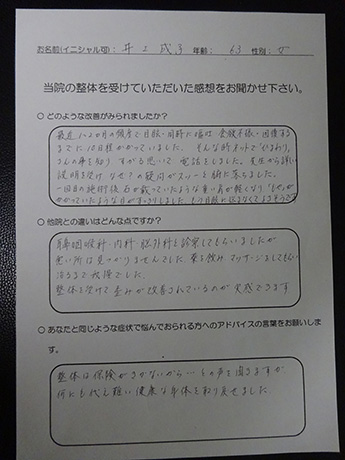 お名前(イニシャル可): 井上 成子 年齢: 63 性別: 女
当院の整体を受けていただいた感想をお聞かせ下さい。
○ どのような改善がみられましたか?
までに10日程かかっていました。そんな時ネットで
さんの事を知り すがる思いで 電話をしました。先生から詳しい
説明を受け なぜ?の疑問がスーッと解けに落ちました。
一回目の施術後 石が載っていたような重い肩が軽くなり
かかっていたような目がすっきりしました。もう目眩に
○ 他院との違いはどんな点ですか?
耳鼻咽喉科・内科・脳外科を診察してもらいましたが
悪い所は見つかりませんでした。薬を飲み マッサージをしてもらい
治るまで我慢でした。
整体を受けて歪みが改善されているのが実感できます
○ あなたと同じような症状で悩んでおられる方へのアドバイスの言葉をお願いしま
す。
整体は保険がきかないから…との声を頂きますが
何にも代え難い健康な身体を取り戻せました。